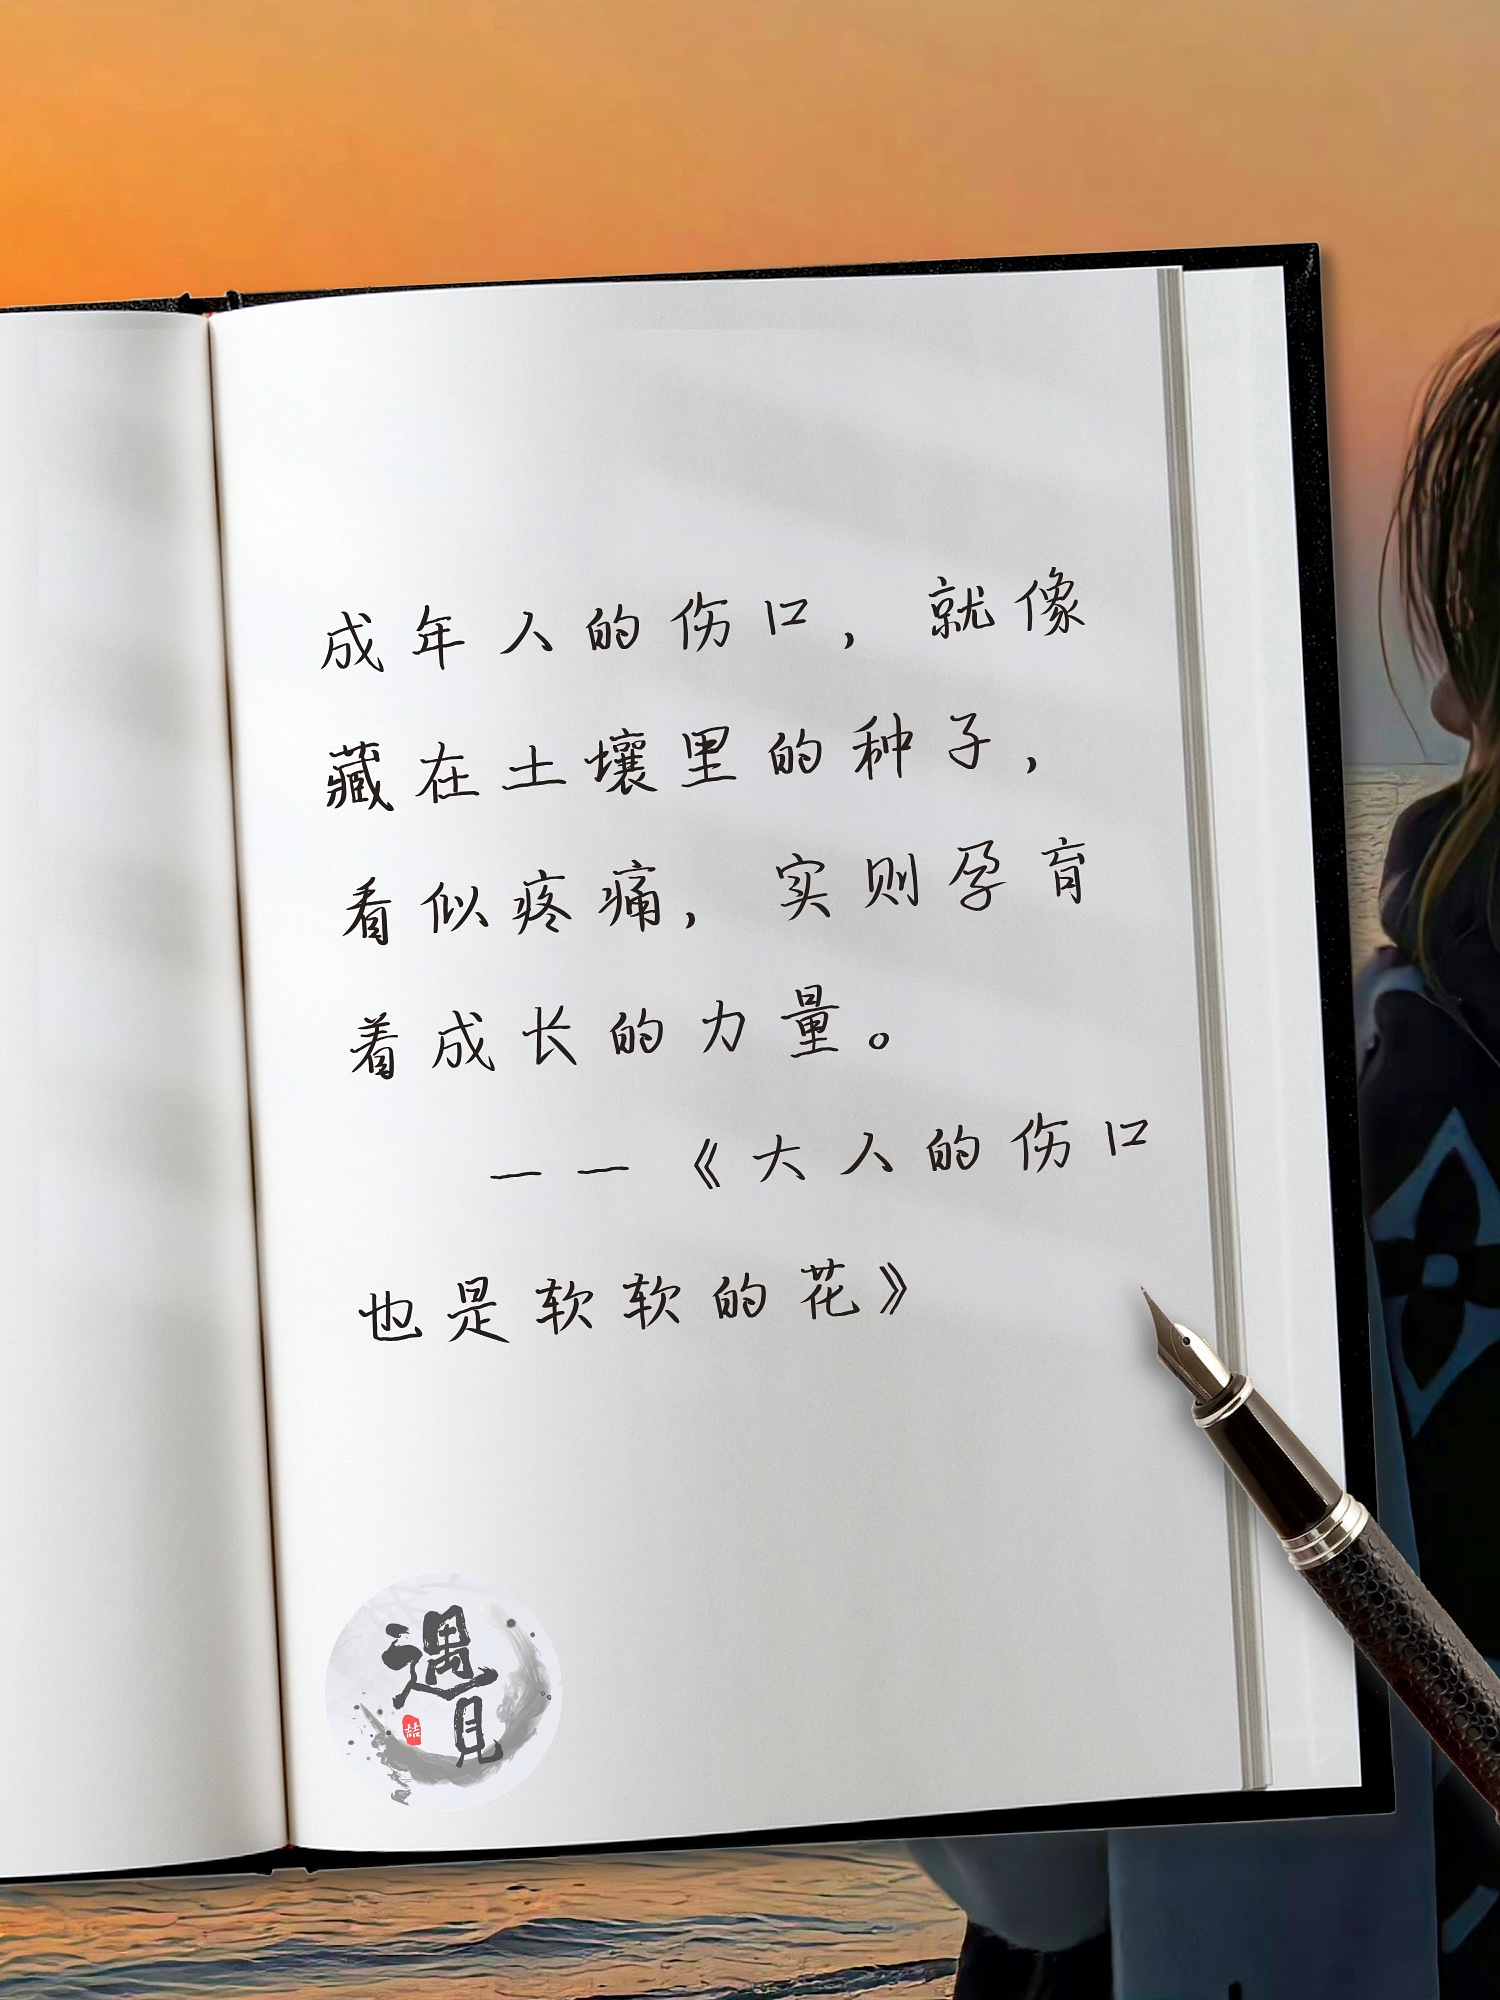 成年人的伤口，就像
藏在土壤里的种子，
看似疼痛，实则孕育
着成长的力量。
——《大人的伤口
也是软软的花》
遇
見